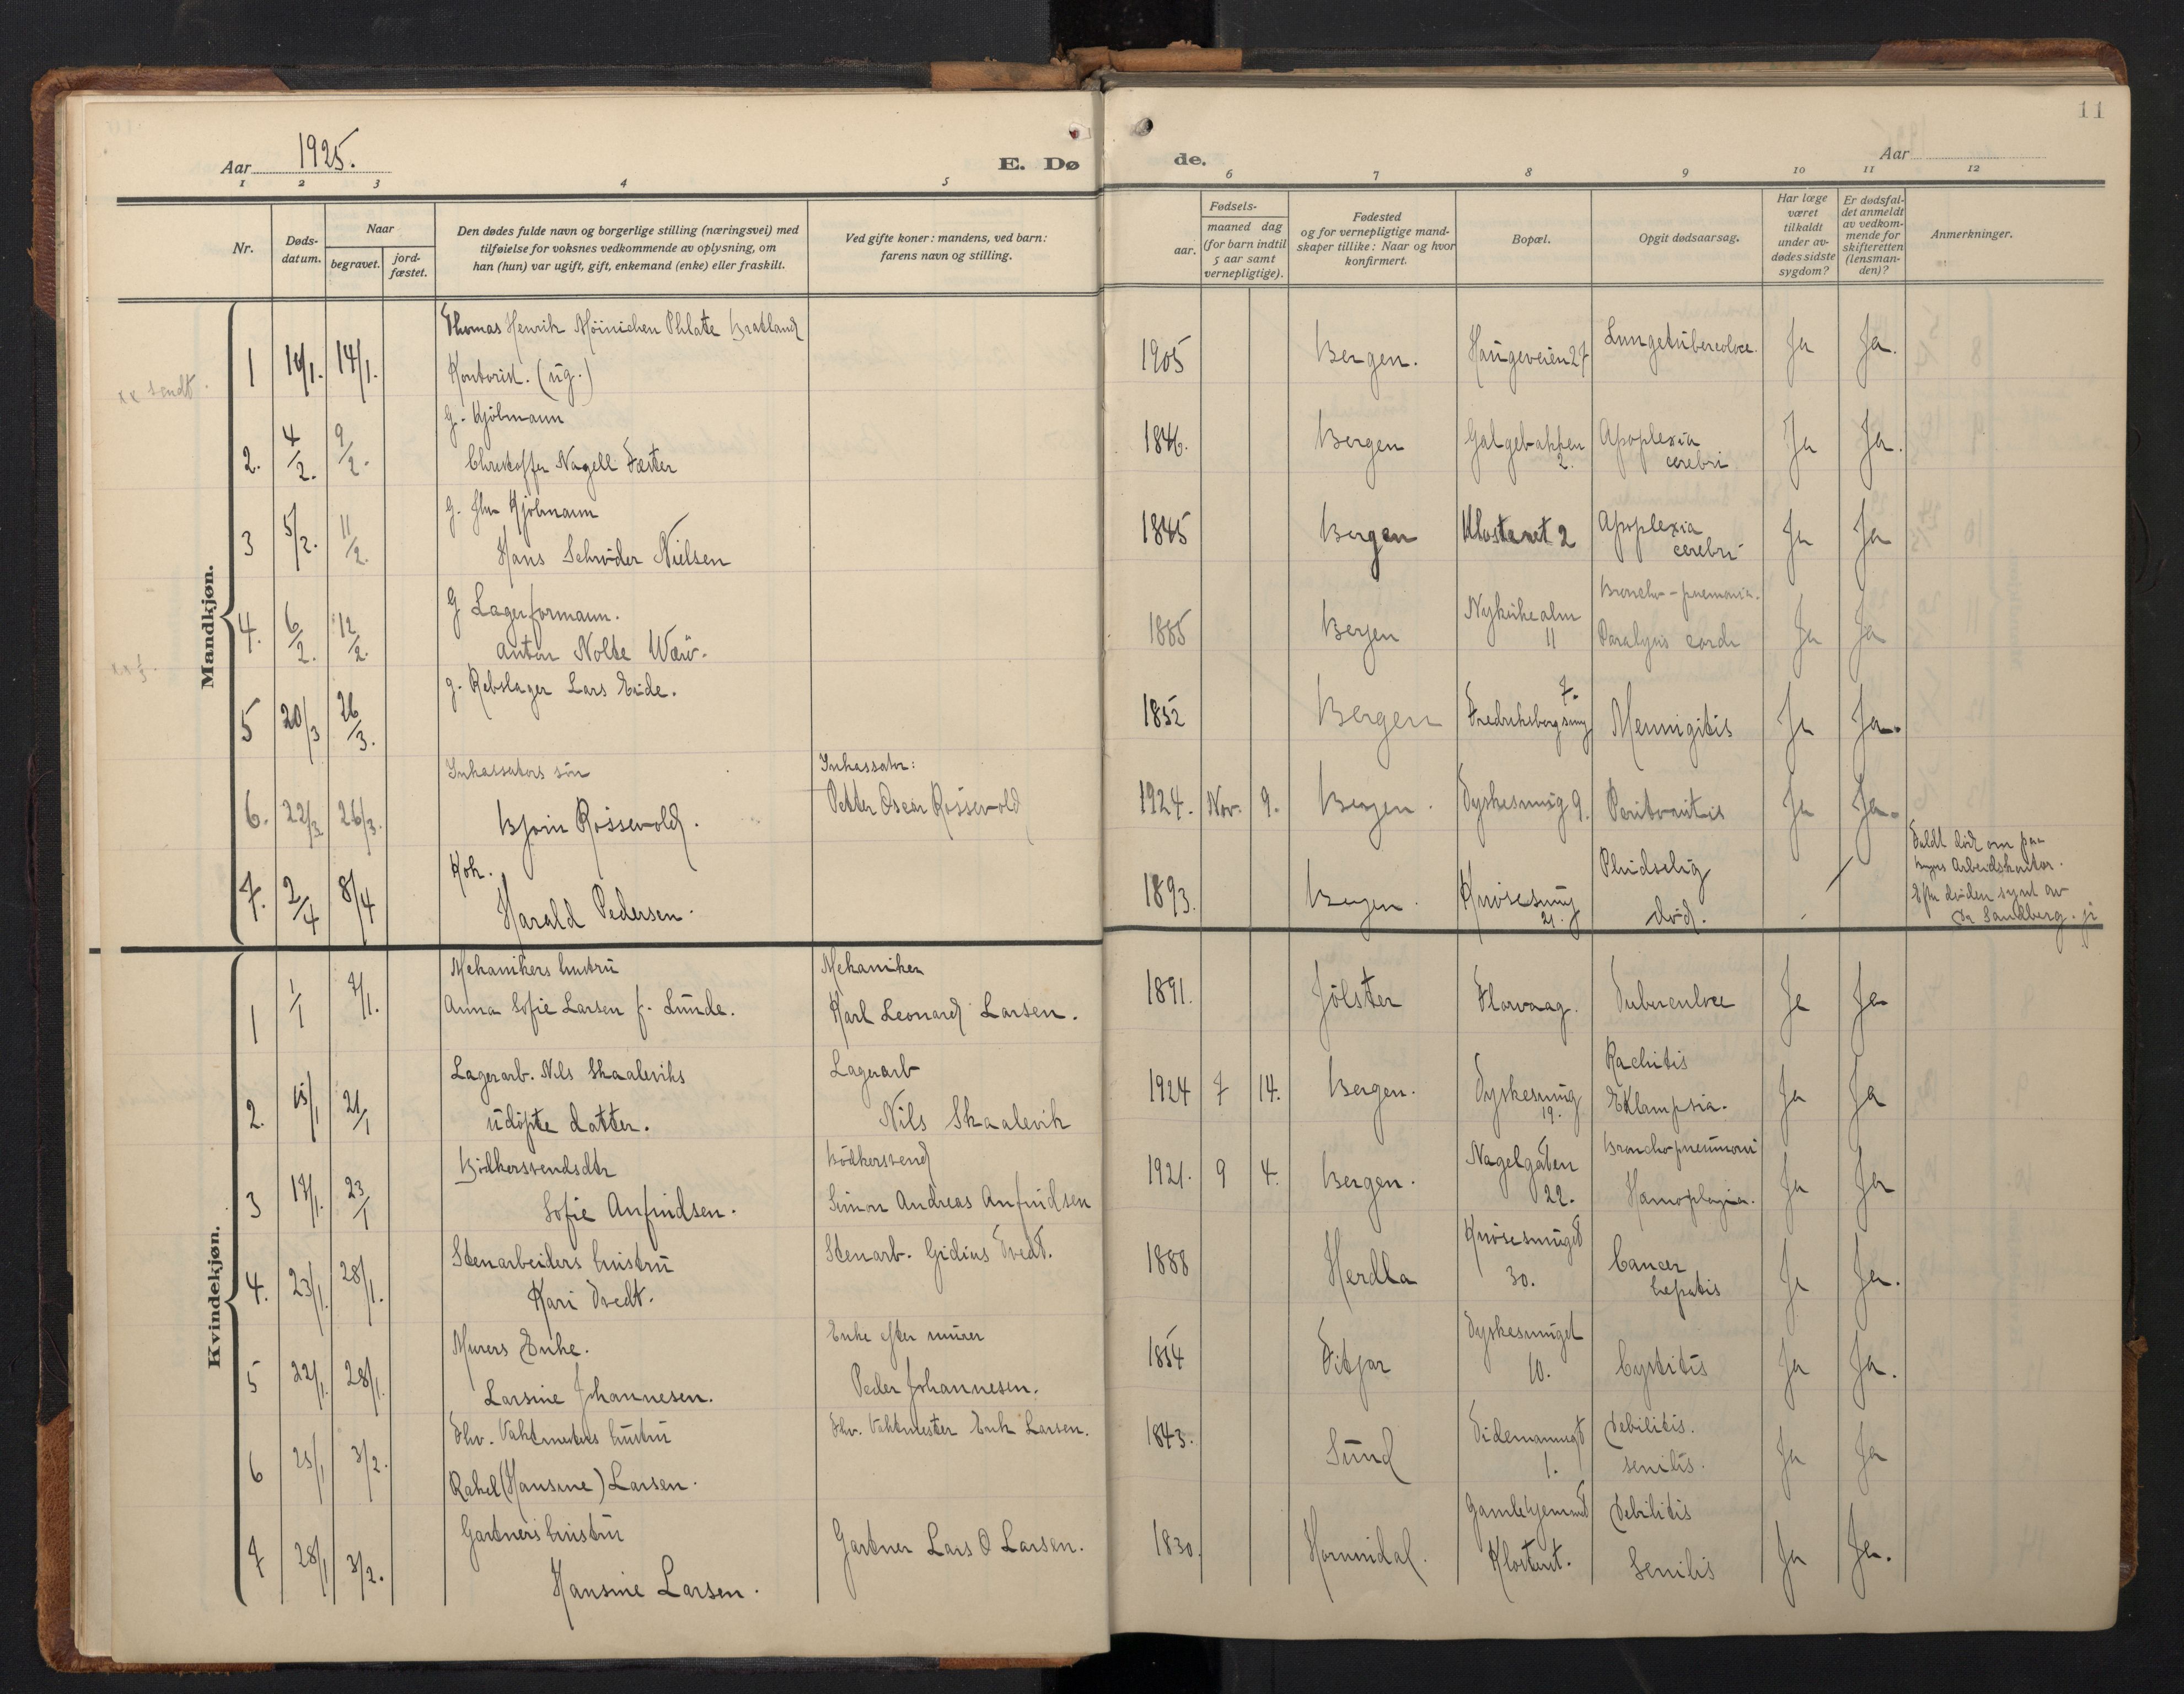 11
Aar 1925.
E. Dø
de.
Aar
1 2 3 4 5
6 7 8 9 10 11 12
Nr.
Døds-
datum.
Naar
begravet.
jord-
fæstet.
Den dødes fulde navn og borgerlige stilling (næringsvei) med
tilføielse for voksnes vedkommende av oplysning, om
han (hun) var ugift, gift, enkemand (enke) eller fraskilt.
Ved gifte koner: mandens, ved barn:
farens navn og stilling.
Fødsels-
aar.
maaned dag
(for barn indtil
5 aar samt
vernepligtige).
Fødested
og for vernepligtige mand-
skaper tillike: Naar og hvor
konfirmert.
Bopæl.
Opgit dødsaarsag.
Har læge
været
tilkaldt
under av-
dødes sidste
sygdom?
Er dødsfal-
det anmeldt
av vedkom-
mende for
skifteretten
(lensman-
den)?
Anmerkninger.
Mandkjøn.
xx sendt.
Thomas Henrik Phlate Bratland
1 14/1. Kontorist. (ug.)
1905 Bergen. Haugeveien 27 Lungetuberculose. Ja Ja.
g. Kjölmann
2. 4/2. 9/2. Christoffer Nagell Fæster
1846. Bergen Galgebakken 2. Apoplexia
cerebri Ja Ja.
g. fhv Kjölmann
3 5/2. 11/2. Hans Schrøder Nielsen
1845 Bergen Klosteret 2 Apoplexia
cerebri Ja Ja
g Lagerformann.
4. 6/2. 12/2. Anton Nolte
1885 Bergen Nykirkealm
11 Broncho-pnemonia.
Paralysis cordis Ja Ja
g. Rebslager Lars Eide.
5 20/3 26/3.
1852 Bergen Fredriksbergsmug 7. Mennigitis Ja Ja.
Inkassators sön
Inkassator:
6. 22/3 26/3. Bjorn Rossevold.
Petter Oscar Rossevold
1924. Nov. 9. Bergen. Tyskesmug 9. Peritonitis Ja Ja.
Kok.
7. 2/4 8/4 Harald Pedersen.
1893. Bergen. Knøsesmug
21. Pludselig
död.
Faldt död om paa
Byens Arbeidskontor.
Efter döden synt av
Dr Sandberg.
Kvindekjøn.
Mekanikers hustru
Mekaniker
1 1/1 7/1. Anna Sofie Larsen f. Lunde.
Karl Leonard Larsen.
1891. Jölster Florvaag. Tuberculose Ja Ja
Lagerarb. Nils Skaaleviks
Lagerarb
2. 15/1 21/1 udöpte datter.
Nils Skaalevik
1924 7 14. Bergen. Tyskesmug
19. Rachitis
Eklampsia. Ja Ja
Bödkersvendsdtr
Bödkersvend
3 17/1. 23/1 Sofie Anfindsen.
Simon Andreas Anfindsen
1921. 9 4. Bergen. Nagelgaten
22. Broncho-pneumoni
Ja Ja
Stenarbeiders hustru
Stenarb. Gidius Tvedt.
4. 23/1. 28/1. Kari Tvedt.
1888 Herdla Knøsesmuget
30. Cancer
hepatis Ja Ja.
Murers Enke.
Enke efter murer
5 22/1. 28/1. Larsine Johannesen.
Peder Johannesen.
1854 Fitjar Tyskesmuget
10. Cystitis Ja Ja.
Fhv. Vaktmesters hustru
Fhv. Vaktmester Erik Larsen.
6 25/1 3/2. Rakel (Hansine) Larsen.
1843. Sund Tidemannsgt
1. Debilitis.
senilis. Ja Ja
Gartners hustru
7 28/1 3/2. Hansine Larsen.
Gartner Lars O Larsen.
1830. Hornindal. Gamlehjemmet
Klosteret. Debilitis
Senilis Ja Ja.